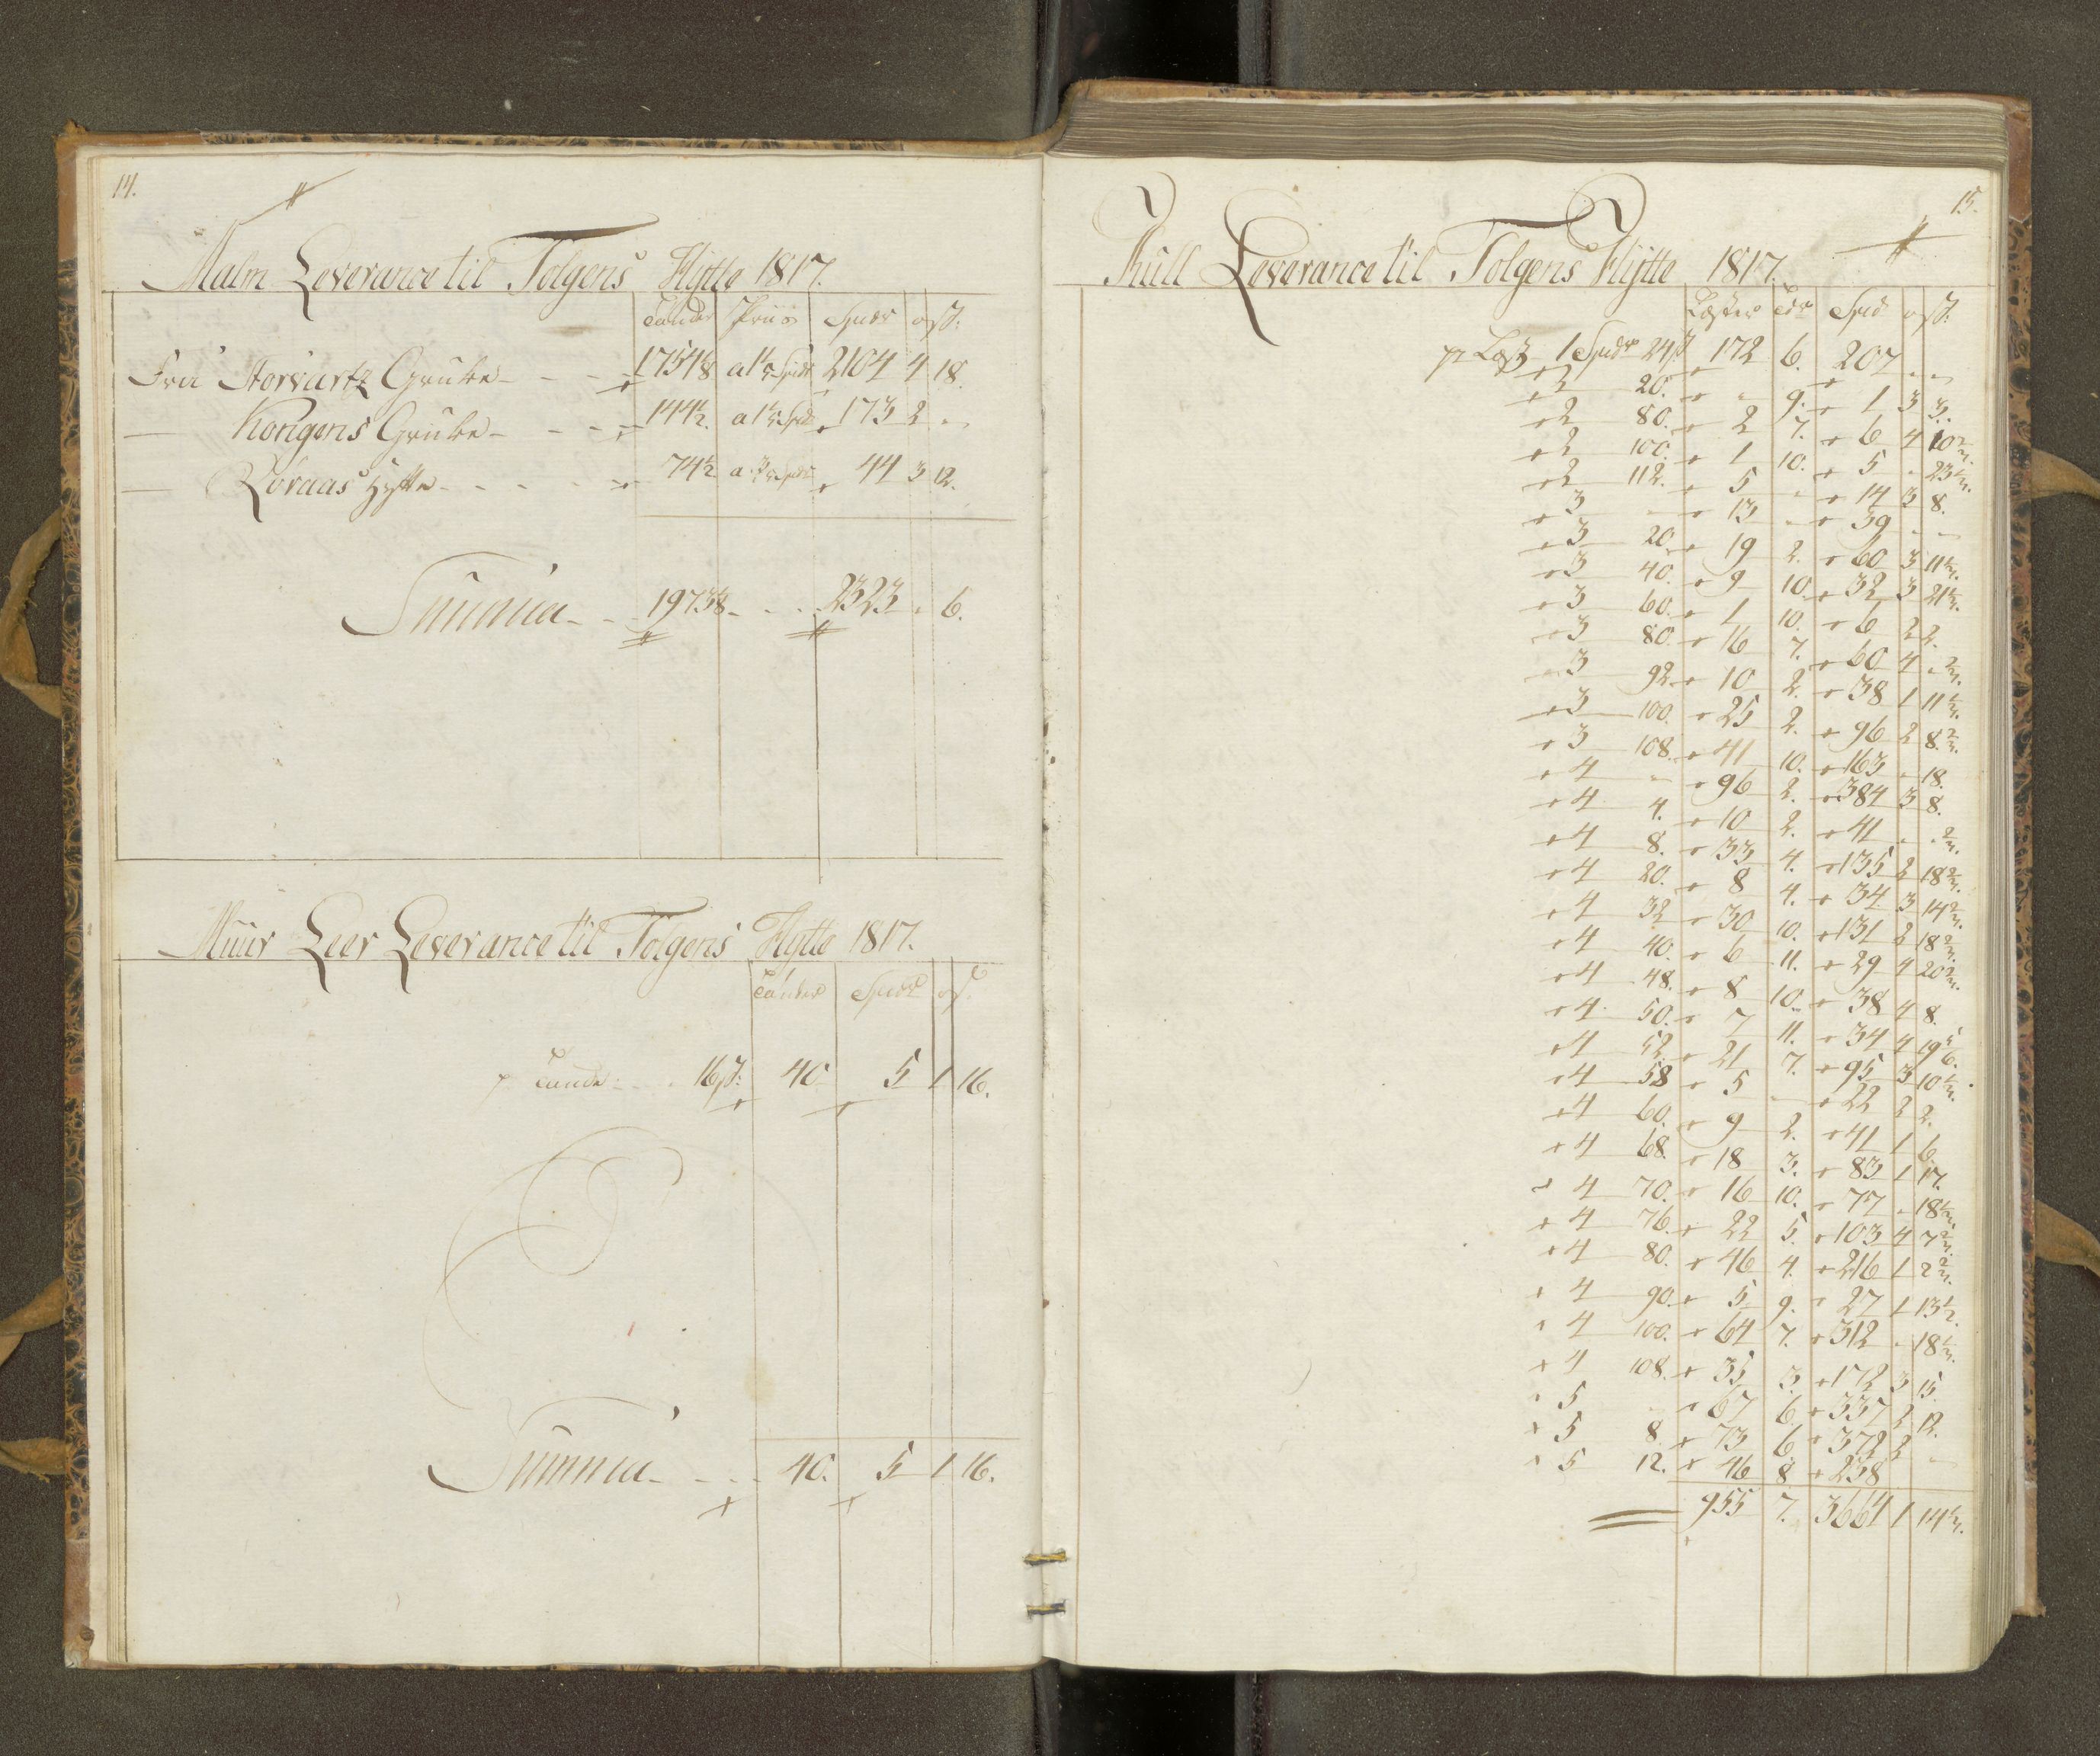 14.
Malm Leverance til Tolgens Hytte 1817.
Tønder Priis Spdr o ß:
Fra Storvartz Grube 1754 1/8 a 1 1/5 Spdr 2104 4 18.
— Kongens Grube 144 1/2. a 1 1/5 Spdr 173 2 "
— Røraas Hytte 74 1/2 a 3/5 Spdr 44 3 12.
Summa 1973 1/8 2323 " 6.
Muur Leer Leverance til Tolgens Hytte 1817.
Tønder Spdr o ß.
pr Tønde 16 ß: 40 5 1 16.
Summa 40. 5 1 16.
15.
Kull Leverance til Tolgens Hytte 1817.
Læster Tdr Spd o ß:
pr Læst 1 Spdr 24 ß 172 6. 207 " "
2 20. " 9. 1 3 3.
2 80. 2 7. 6 4 10 2/3.
2 100. 1 10. 5 " 23 1/3.
2 112. 5 " 14 3 8.
3 " 13 " 39 " "
3 20. 19 2. 60 3 11 1/3.
3 40. 9 10. 32 3 21 1/3.
3 60. 1 10. 6 2 2.
3 80. 16 7. 60 4 " 2/3.
3 92. 10 2. 38 1 11 1/3.
3 100. 25 2. 96 2 8 2/3.
3 108. 41 10. 163 " 18.
4 " 96 2. 384 3 8.
4 4. 10 2. 41 " " 2/3.
4 8. 33 4. 135 2 18 2/3.
4 20. 8 4. 34 3 14 2/3.
4 32 30 10. 131 2 18 2/3.
4 40. 6 11. 29 4 20 2/3.
4 48. 8 10. 38 4 8.
4 50. 7 11. 34 4 19 5/6.
4 52. 21 7. 95 3 10 1/3.
4 58 5 " 22 2 2.
4 60. 9 2. 41 1 6.
4 68. 18 3. 83 1 17.
4 70. 16 10. 77 " 18 1/3.
4 76. 22 5. 103 4 7 2/3.
4 80. 46 4. 216 1 2 2/3.
4 90. 5 9. 27 1 13 1/2.
4 100. 64 7. 312 " 18 1/3.
4 108. 35 3. 172 3 15.
5 67 6. 337 2 12.
5 8. 73 6. 372 2 "
5 12. 46 8 238
955 7. 3664 1 14 1/3.